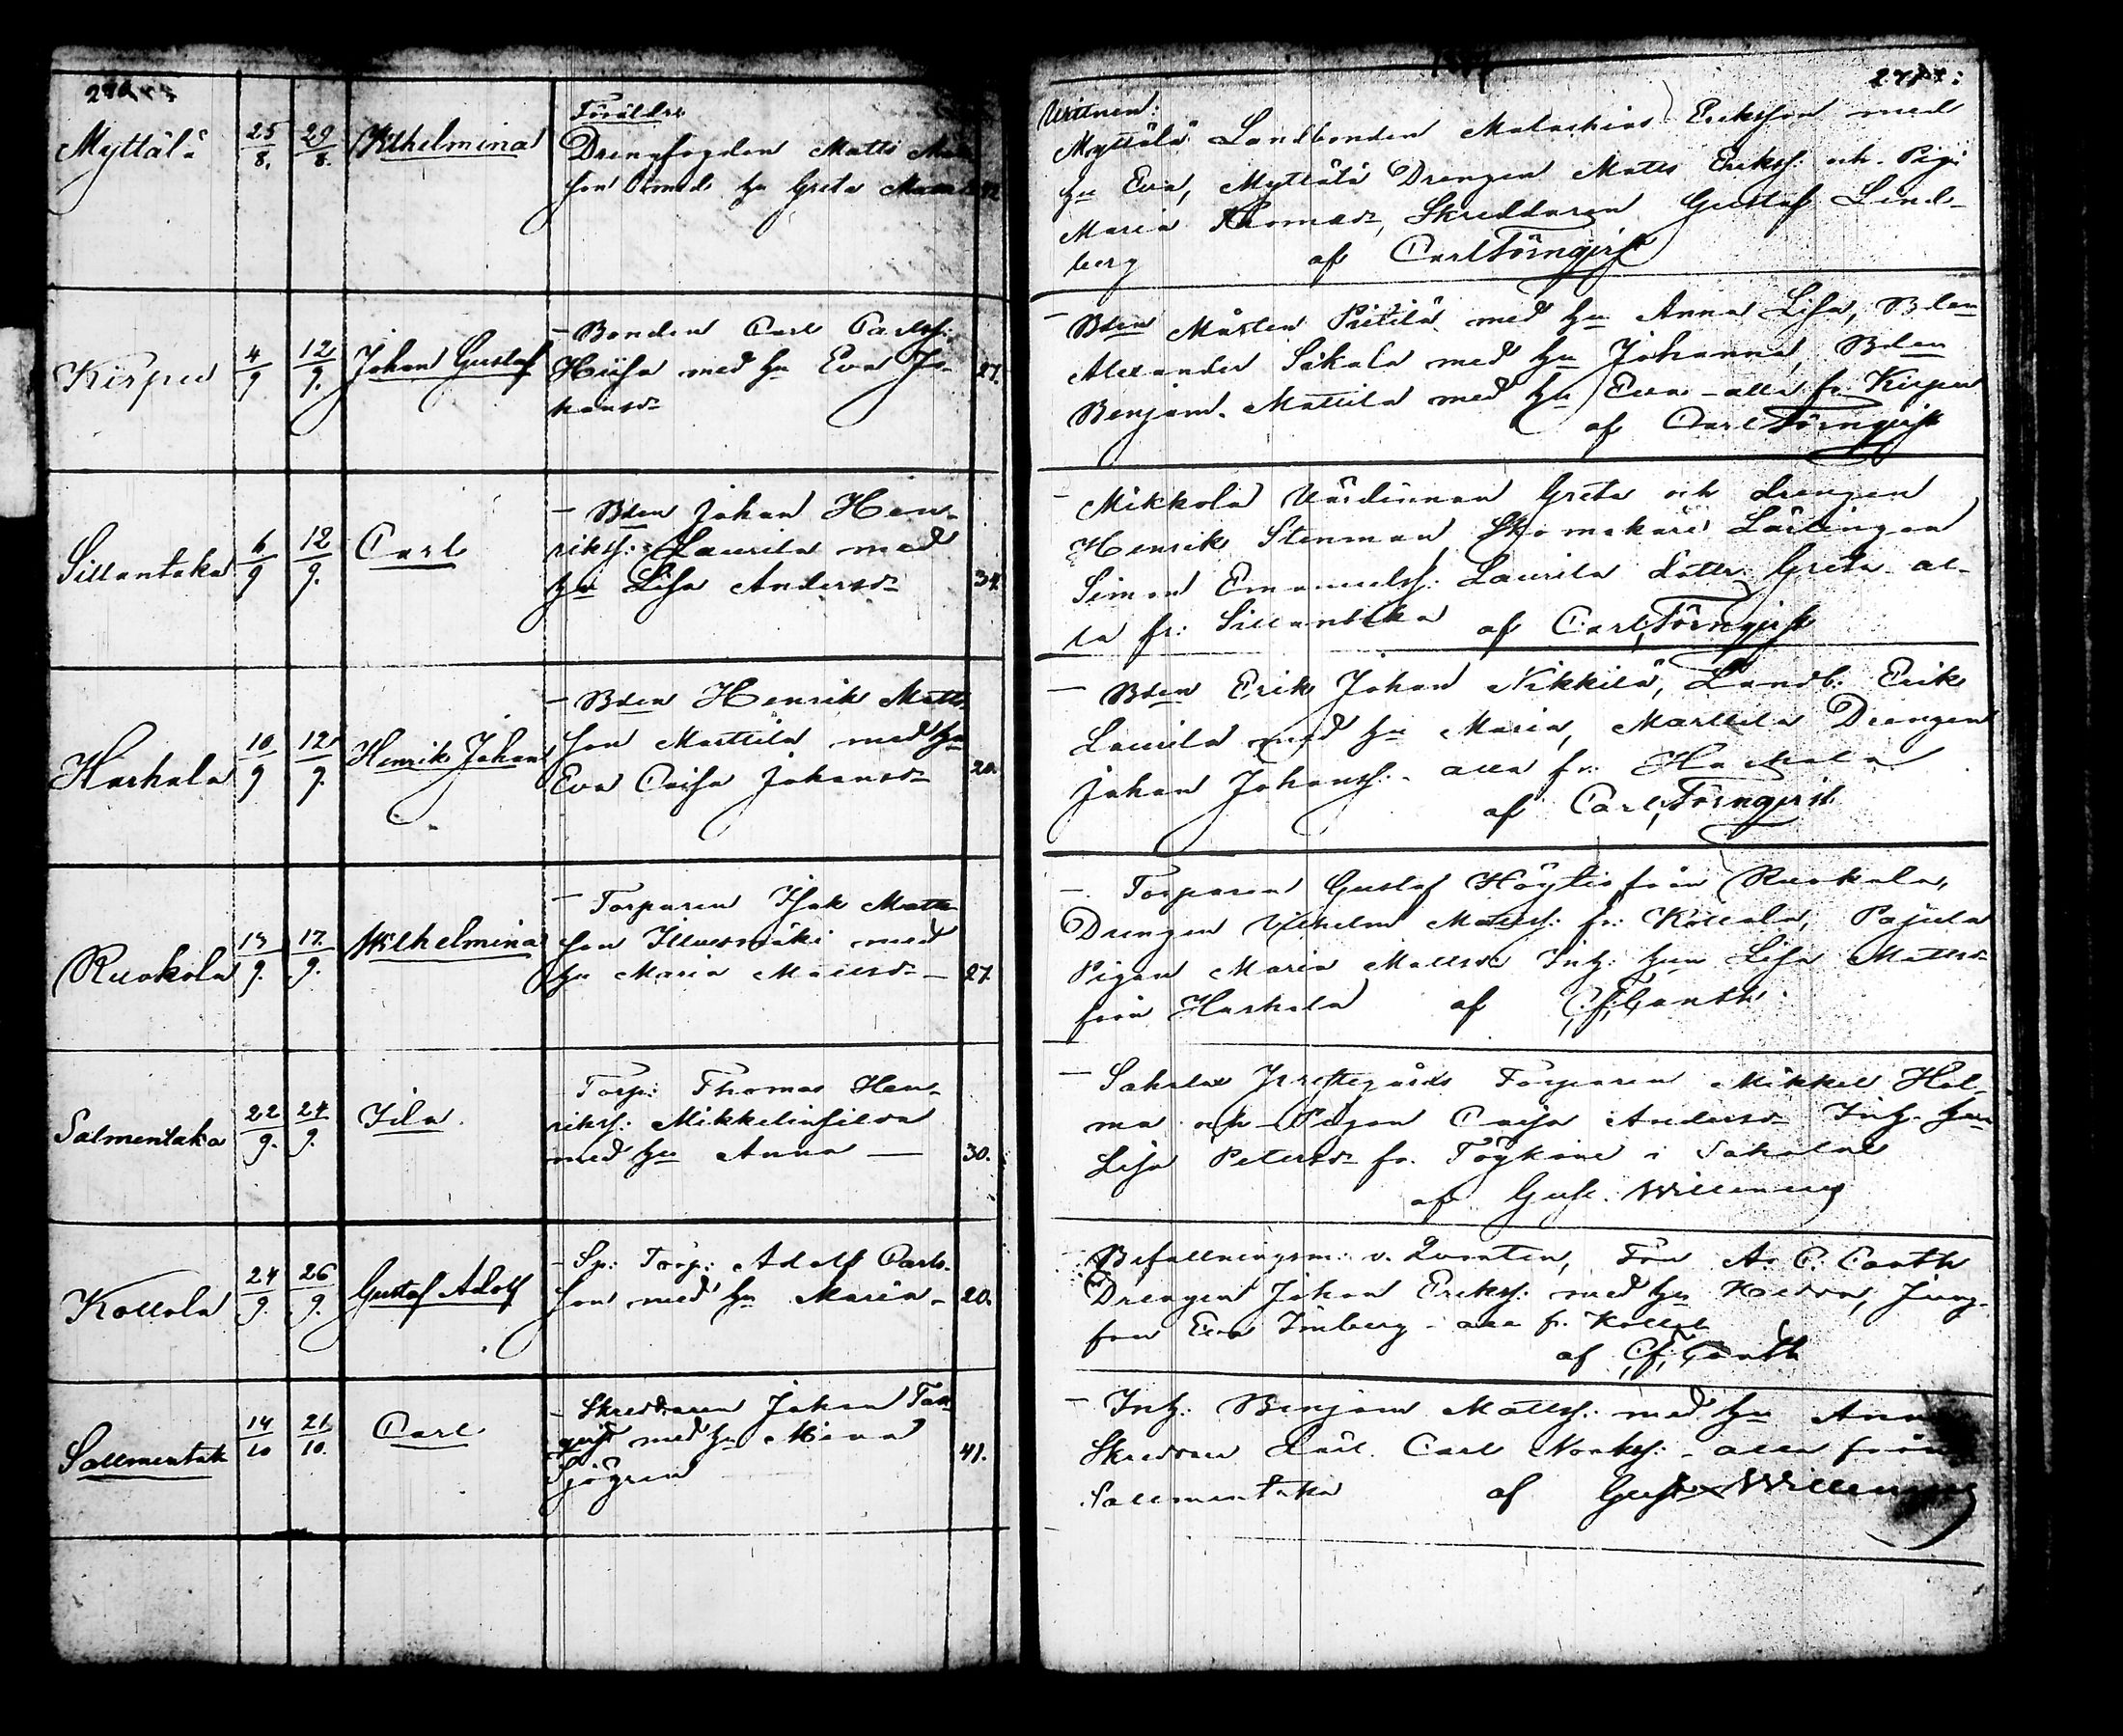 Myttälä 25/8. 29/8. Wilhelmina
Föräldrar
Drengfogden Matts
son med hu Greta
Kirpu 4/9 12/9. Johan Gustaf
– Bonden Carl Carlss:
Heisa med hu Eva Jo-
hansdr 27.
Sillantaka 6/9 12/9. Carl
– Bden Johan Hen-
rikss: Laurila med
hu Lisa Andersdr 34.
Harhala 10/9 12/9. Henrik Johan
– Bden Henrik Matts
son Marttila med hu
Eva Caisa Johansdr 20.
Ruokola 13/9. 17/9. Wilhelmina
– Torparen Isak Matts
son Illuexmäki med
hu Maria Mattsdr – 27.
Salmentaka 22/9. 24/9. Ida.
Torp: Thomas Hen-
rikss: Mikkelinsilda
med hu Anna — 30.
Kollola 24/9. 26/9. Gustaf Adolf
– Sp: Torp: Adolf Carls-
son med hu Maria – 20.
Sallmentak 14/10 21/10. Carl
– Skreddaren Johan
med hu Mina
Sjögren 41.
Vittnen:
Myttälä Landbonden Malachias Eriksson med
hu Eva, Myttälä Drengen Matts Erikss: och Pig:
Maria Thomasdr, Skreddaren Gustaf Lind-
berg af Carl Törnqvist
– Bden Mårten Pietilä med hu Anna Lisa, Bden
Alexander Sikala med hu Johanna, Bden
Benjam. Mattila med hu Eva – alla fr. Kirpu
af Carl Törnqvist
– Mikkola Värdinnan Greta och drengen
Henrik Stenman, Skomakare Lärlingen
Simon Emanuelss: Laurila dotter Greta – al-
la fr: Sillantaka af Carl Törnqvist
– Bden Erik Johan Nikkilä, Landb: Erik
Laurila med hu Maria, Marttila Drengen
Johan Johanss: – alla fr: Harhala
af Carl Törnqvist
– Torparen Gustaf Höytiö från Ruokola,
Drengen Vilhelm Matss: fr: Kollola, Pajula
Pigan Maria Mattsdr Inh: hun Lisa Mattsdr
från Harhala af C. F. Ganth
– Sahalax Prestegårds Torparen Mikkel Hol-
ma och Pigan Caisa Andersdr Inh. hun
Lisa Petersdr fr. i Sahalax
af Gust. Willenius
– Befallningsm: v. Qvanten, Fru A. C. Canth
Drengen Johan Erikss: med hu Hedda, Jung-
frun Eva Imberg – alla fr. Kollola
af C. F. Ganth
– Inh: Benjam Mattss: med hu Anna
Skreddare Lärl. Carl – alla från
Sallmentaka af Gust. Willenius